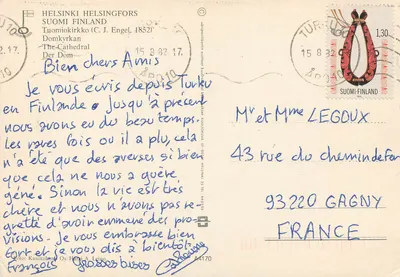 HELSINKI HELSINGFORS
SUOMI FINLAND
Tuomiokirkko (C. J. Engel, 1852)
Domkyrkan
The Cathedral
Der Dom
15.8.82.17.
TURKU
15.8.82-17.
ÅBO 10
1,30
SUOMI FINLAND
Bien chers Amis
Je vous écris depuis Turku
en Finlande. Jusqu'à présent
nous avons eu du beau temps.
les rares fois ou il a plu, cela
n'a été que des averses si bien
que cela ne nous a guère
géné. Sinon la vie est très
chère et nous n'avons pas re-
gretté d'avoir emmené des pro-
visions. Je vous embrasse bien
fort et je vous dis à bientôt
François Grosses bises
Mr et Mme LEGOUX
43 rue du chemin de Fer
93220 GAGNY
FRANCE
A4170